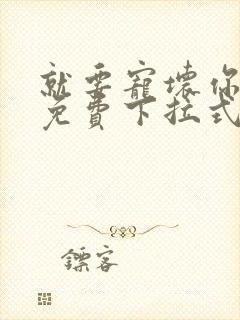 就要寵壞你
免費下拉式
鏢客